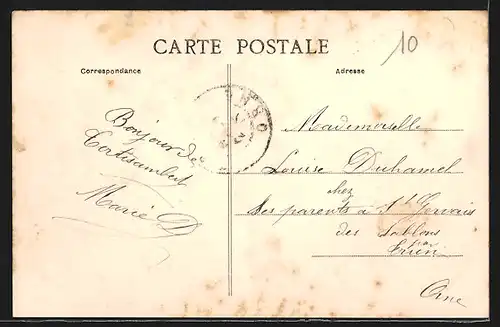 10
CARTE POSTALE
Correspondance
Adresse
ORNE
Bonjour de
Cortisambert
Marie D
Mademoiselle
Louise Duhamel
chez
Ses parents à St Gervais
des Sablons
par
Trun
Orne